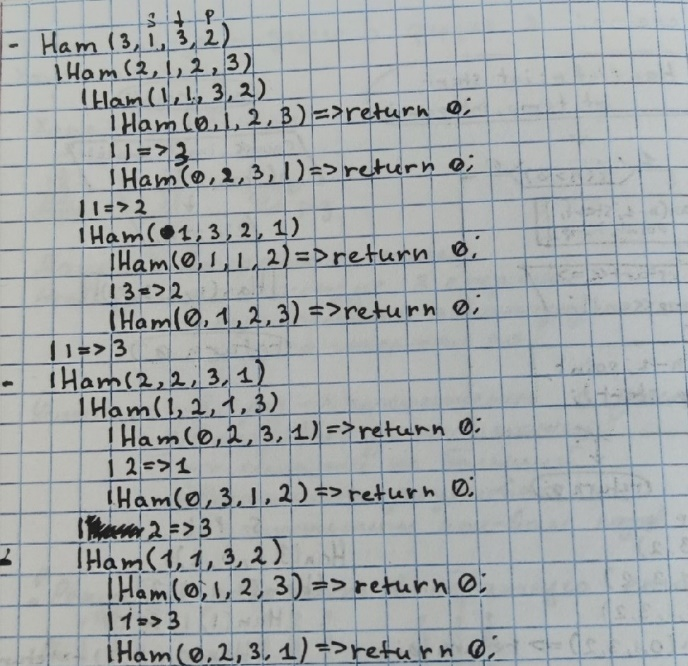 s t p
- Ham (3, 1, 3, 2)
| Ham(2, 1, 2, 3)
| Ham(1, 1, 3, 2)
| Ham(0, 1, 2, 3) => return 0;
| 1 => 3
| Ham(0, 2, 3, 1) => return 0;
| 1 => 2
| Ham( 1, 3, 2, 1)
| Ham(0, 1, 1, 2) => return 0;
| 3 => 2
| Ham(0, 1, 2, 3) => return 0;
| 1 => 3
- | Ham(2, 2, 3, 1)
| Ham(1, 2, 1, 3)
| Ham(0, 2, 3, 1) => return 0;
| 2 => 1
| Ham(0, 3, 1, 2) => return 0;
| 2 => 3
| Ham(1, 1, 3, 2)
| Ham(0, 1, 2, 3) => return 0;
| 1 => 3
| Ham(0, 2, 3, 1) => return 0;